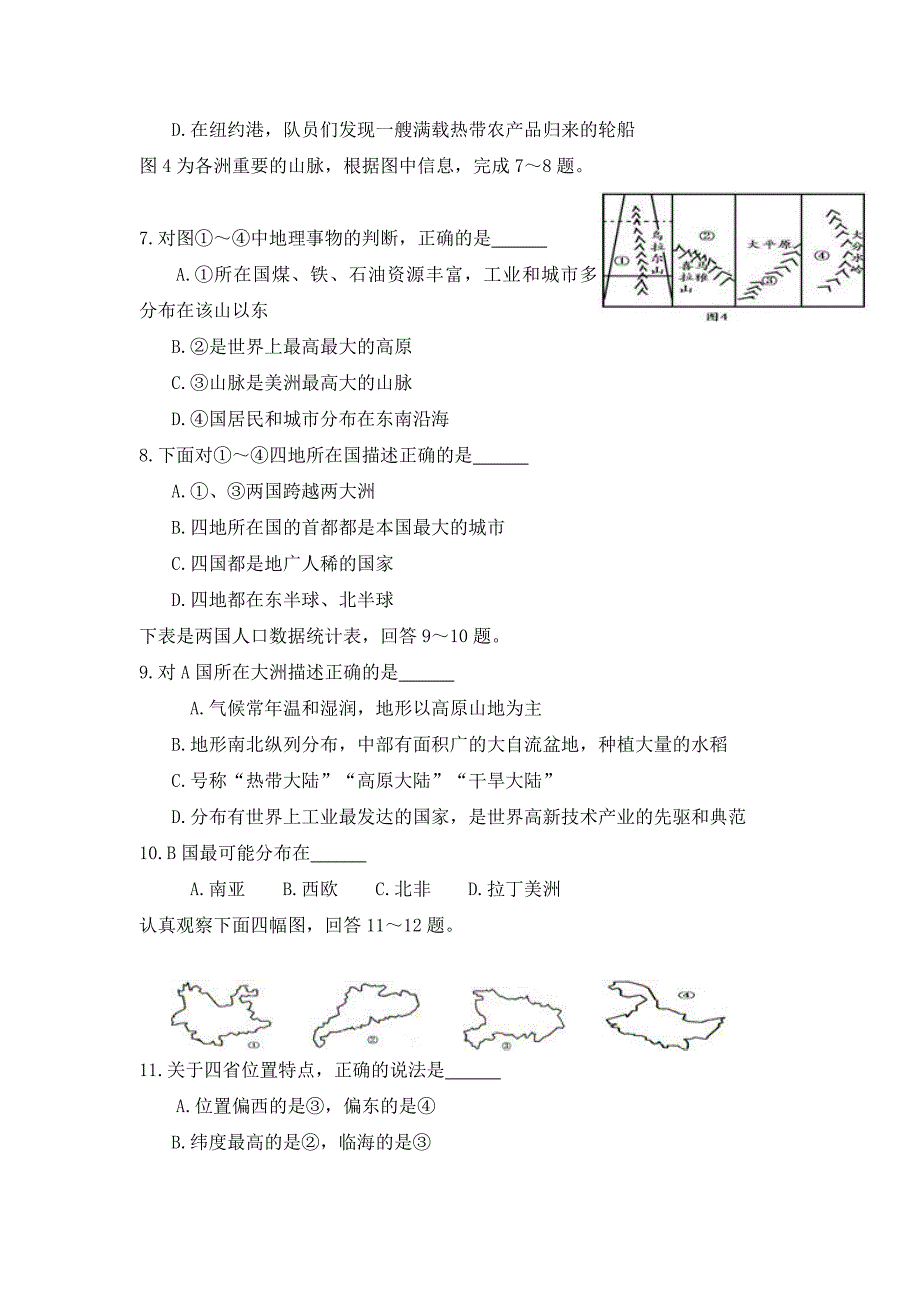 D.在纽约港，队员们发现一艘满载热带农产品归来的轮船
图4为各洲重要的山脉，根据图中信息，完成7～8题。
7.对图①～④中地理事物的判断，正确的是______
A.①所在国煤、铁、石油资源丰富，工业和城市多
分布在该山以东
① 乌拉尔山
② 喜马拉雅山
大平原 ③
④ 大分水岭
图4
B.②是世界上最高最大的高原
C.③山脉是美洲最高大的山脉
D.④国居民和城市分布在东南沿海
8.下面对①～④四地所在国描述正确的是______
A.①、③两国跨越两大洲
B.四地所在国的首都都是本国最大的城市
C.四国都是地广人稀的国家
D.四地都在东半球、北半球
下表是两国人口数据统计表，回答9～10题。
9.对A国所在大洲描述正确的是______
A.气候常年温和湿润，地形以高原山地为主
B.地形南北纵列分布，中部有面积广的大自流盆地，种植大量的水稻
C.号称“热带大陆”“高原大陆”“干旱大陆”
D.分布有世界上工业最发达的国家，是世界高新技术产业的先驱和典范
10.B国最可能分布在______
A.南亚 B.西欧 C.北非 D.拉丁美洲
认真观察下面四幅图，回答11～12题。
① ② ③ ④
11.关于四省位置特点，正确的说法是______
A.位置偏西的是③，偏东的是④
B.纬度最高的是②，临海的是③